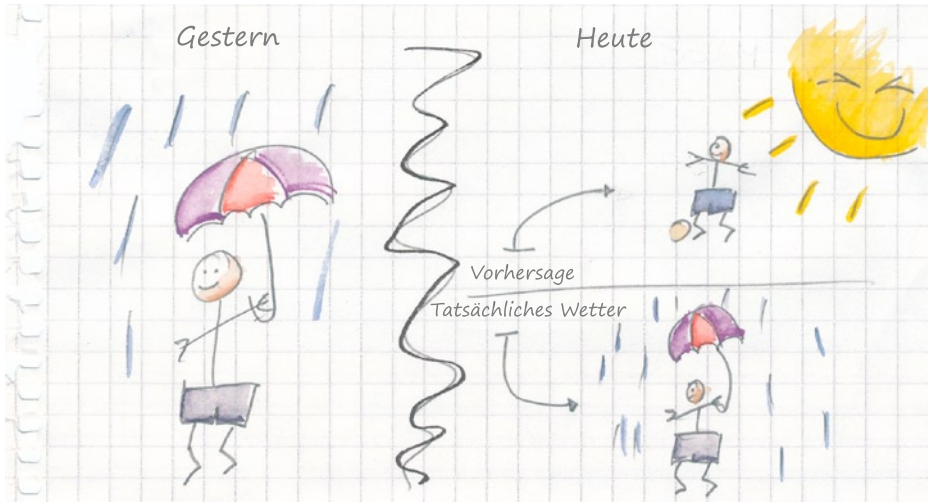 Gestern
Heute
Vorhersage
Tatsächliches Wetter